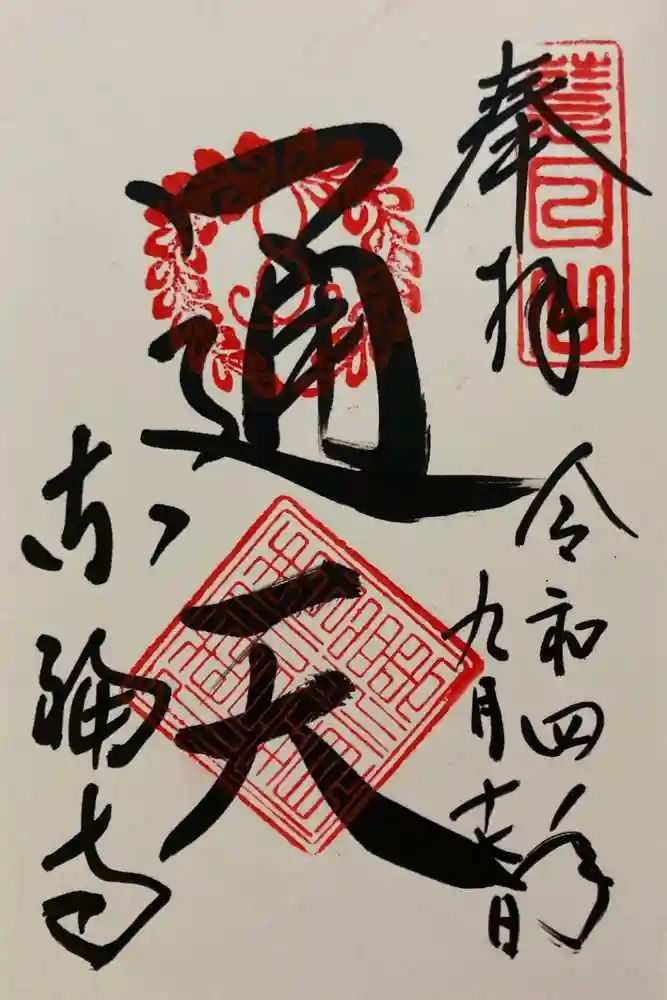 慧日山
奉拝
令和四年
九月
通天
東福寺